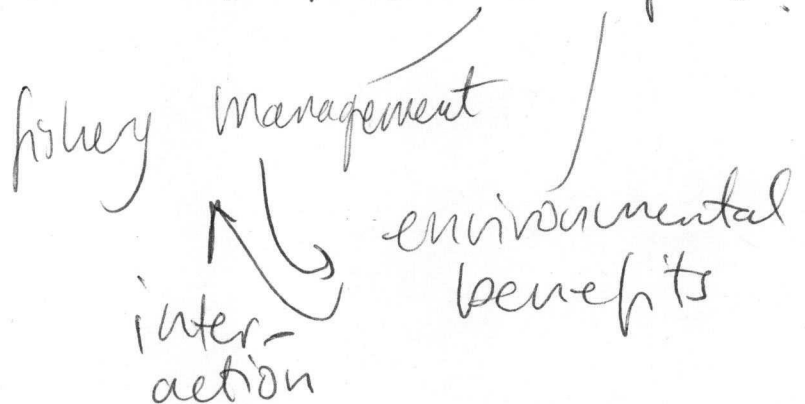 fishery management
environmental
benefits
inter-
action